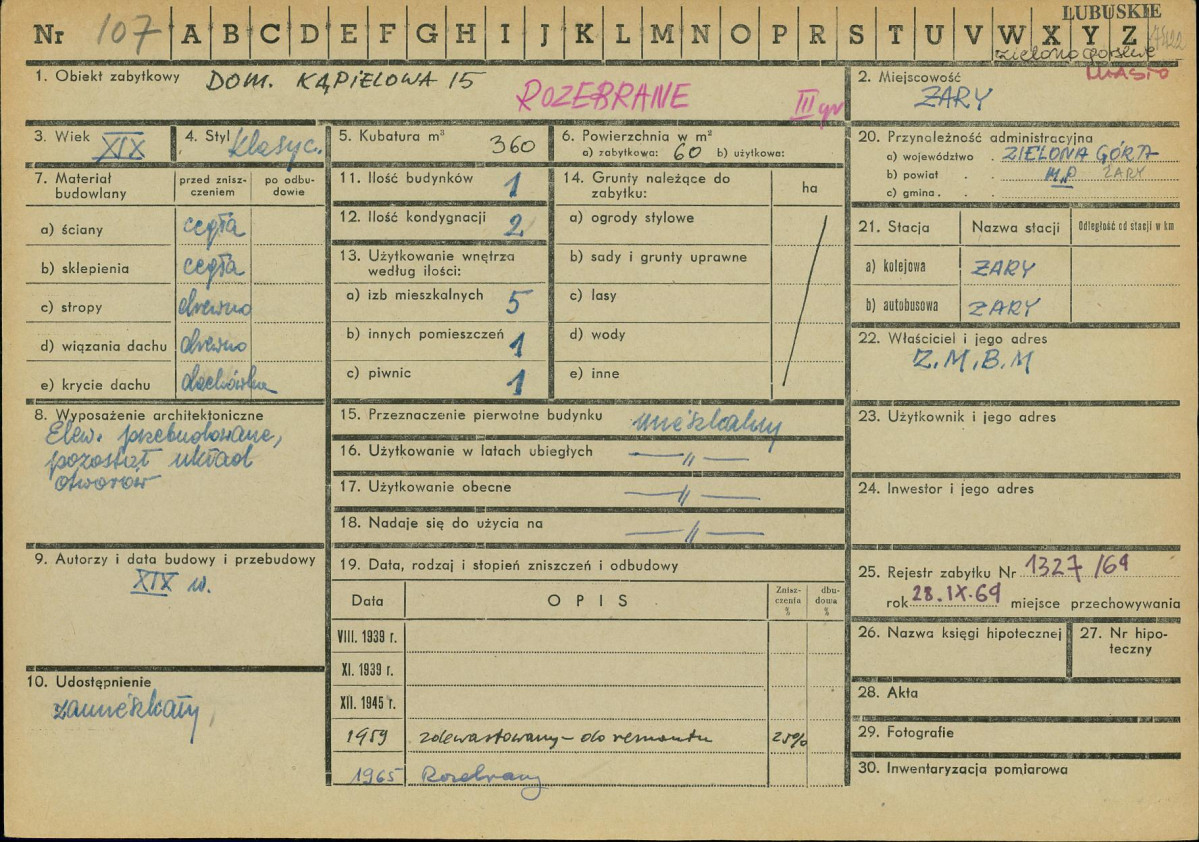 LUBUSKIE
Nr 107 A B C D E F G H I J K L M N O P R S T U V W X Y Z
zielonogórskie
1. Obiekt zabytkowy DOM. KĄPIELOWA 15
ROZEBRANE III gr
2. Miejscowość miasto
ŻARY
3. Wiek XIX
4. Styl klasyc.
5. Kubatura m³ 360
6. Powierzchnia w m²
a) zabytkowa: 60 b) użytkowa:
7. Materiał budowlany
przed zniszczeniem
po odbudowie
a) ściany cegła
b) sklepienia cegła
c) stropy drewno
d) wiązania dachu drewno
e) krycie dachu dachówka
8. Wyposażenie architektoniczne
Elew. przebudowane,
pozostał układ
otworów
9. Autorzy i data budowy i przebudowy
XIX w.
10. Udostępnienie
zamieszkały
11. Ilość budynków 1
12. Ilość kondygnacji 2
13. Użytkowanie wnętrza
według ilości:
a) izb mieszkalnych 5
b) innych pomieszczeń 1
c) piwnic 1
14. Grunty należące do
zabytku: ha
a) ogrody stylowe
b) sady i grunty uprawne
c) lasy
d) wody
e) inne
15. Przeznaczenie pierwotne budynku mieszkalny
16. Użytkowanie w latach ubiegłych —〃—
17. Użytkowanie obecne —〃—
18. Nadaje się do użycia na —〃—
19. Data, rodzaj i stopień zniszczeń i odbudowy
Data OPIS Zniszczenia % dbudowa %
VIII. 1939 r.
XI. 1939 r.
XII. 1945 r.
1959 zdewastowany – do remontu 25%
1965 Rozebrany
20. Przynależność administracyjna
a) województwo . ZIELONA GÓRA
b) powiat . . M.P ŻARY
c) gmina . .
21. Stacja Nazwa stacji Odległość od stacji w km
a) kolejowa ŻARY
b) autobusowa ŻARY
22. Właściciel i jego adres
Z.M.B.M
23. Użytkownik i jego adres
24. Inwestor i jego adres
25. Rejestr zabytku Nr 1327/64
rok 28.IX.64 miejsce przechowywania
26. Nazwa księgi hipotecznej
27. Nr hipoteczny
28. Akta
29. Fotografie
30. Inwentaryzacja pomiarowa